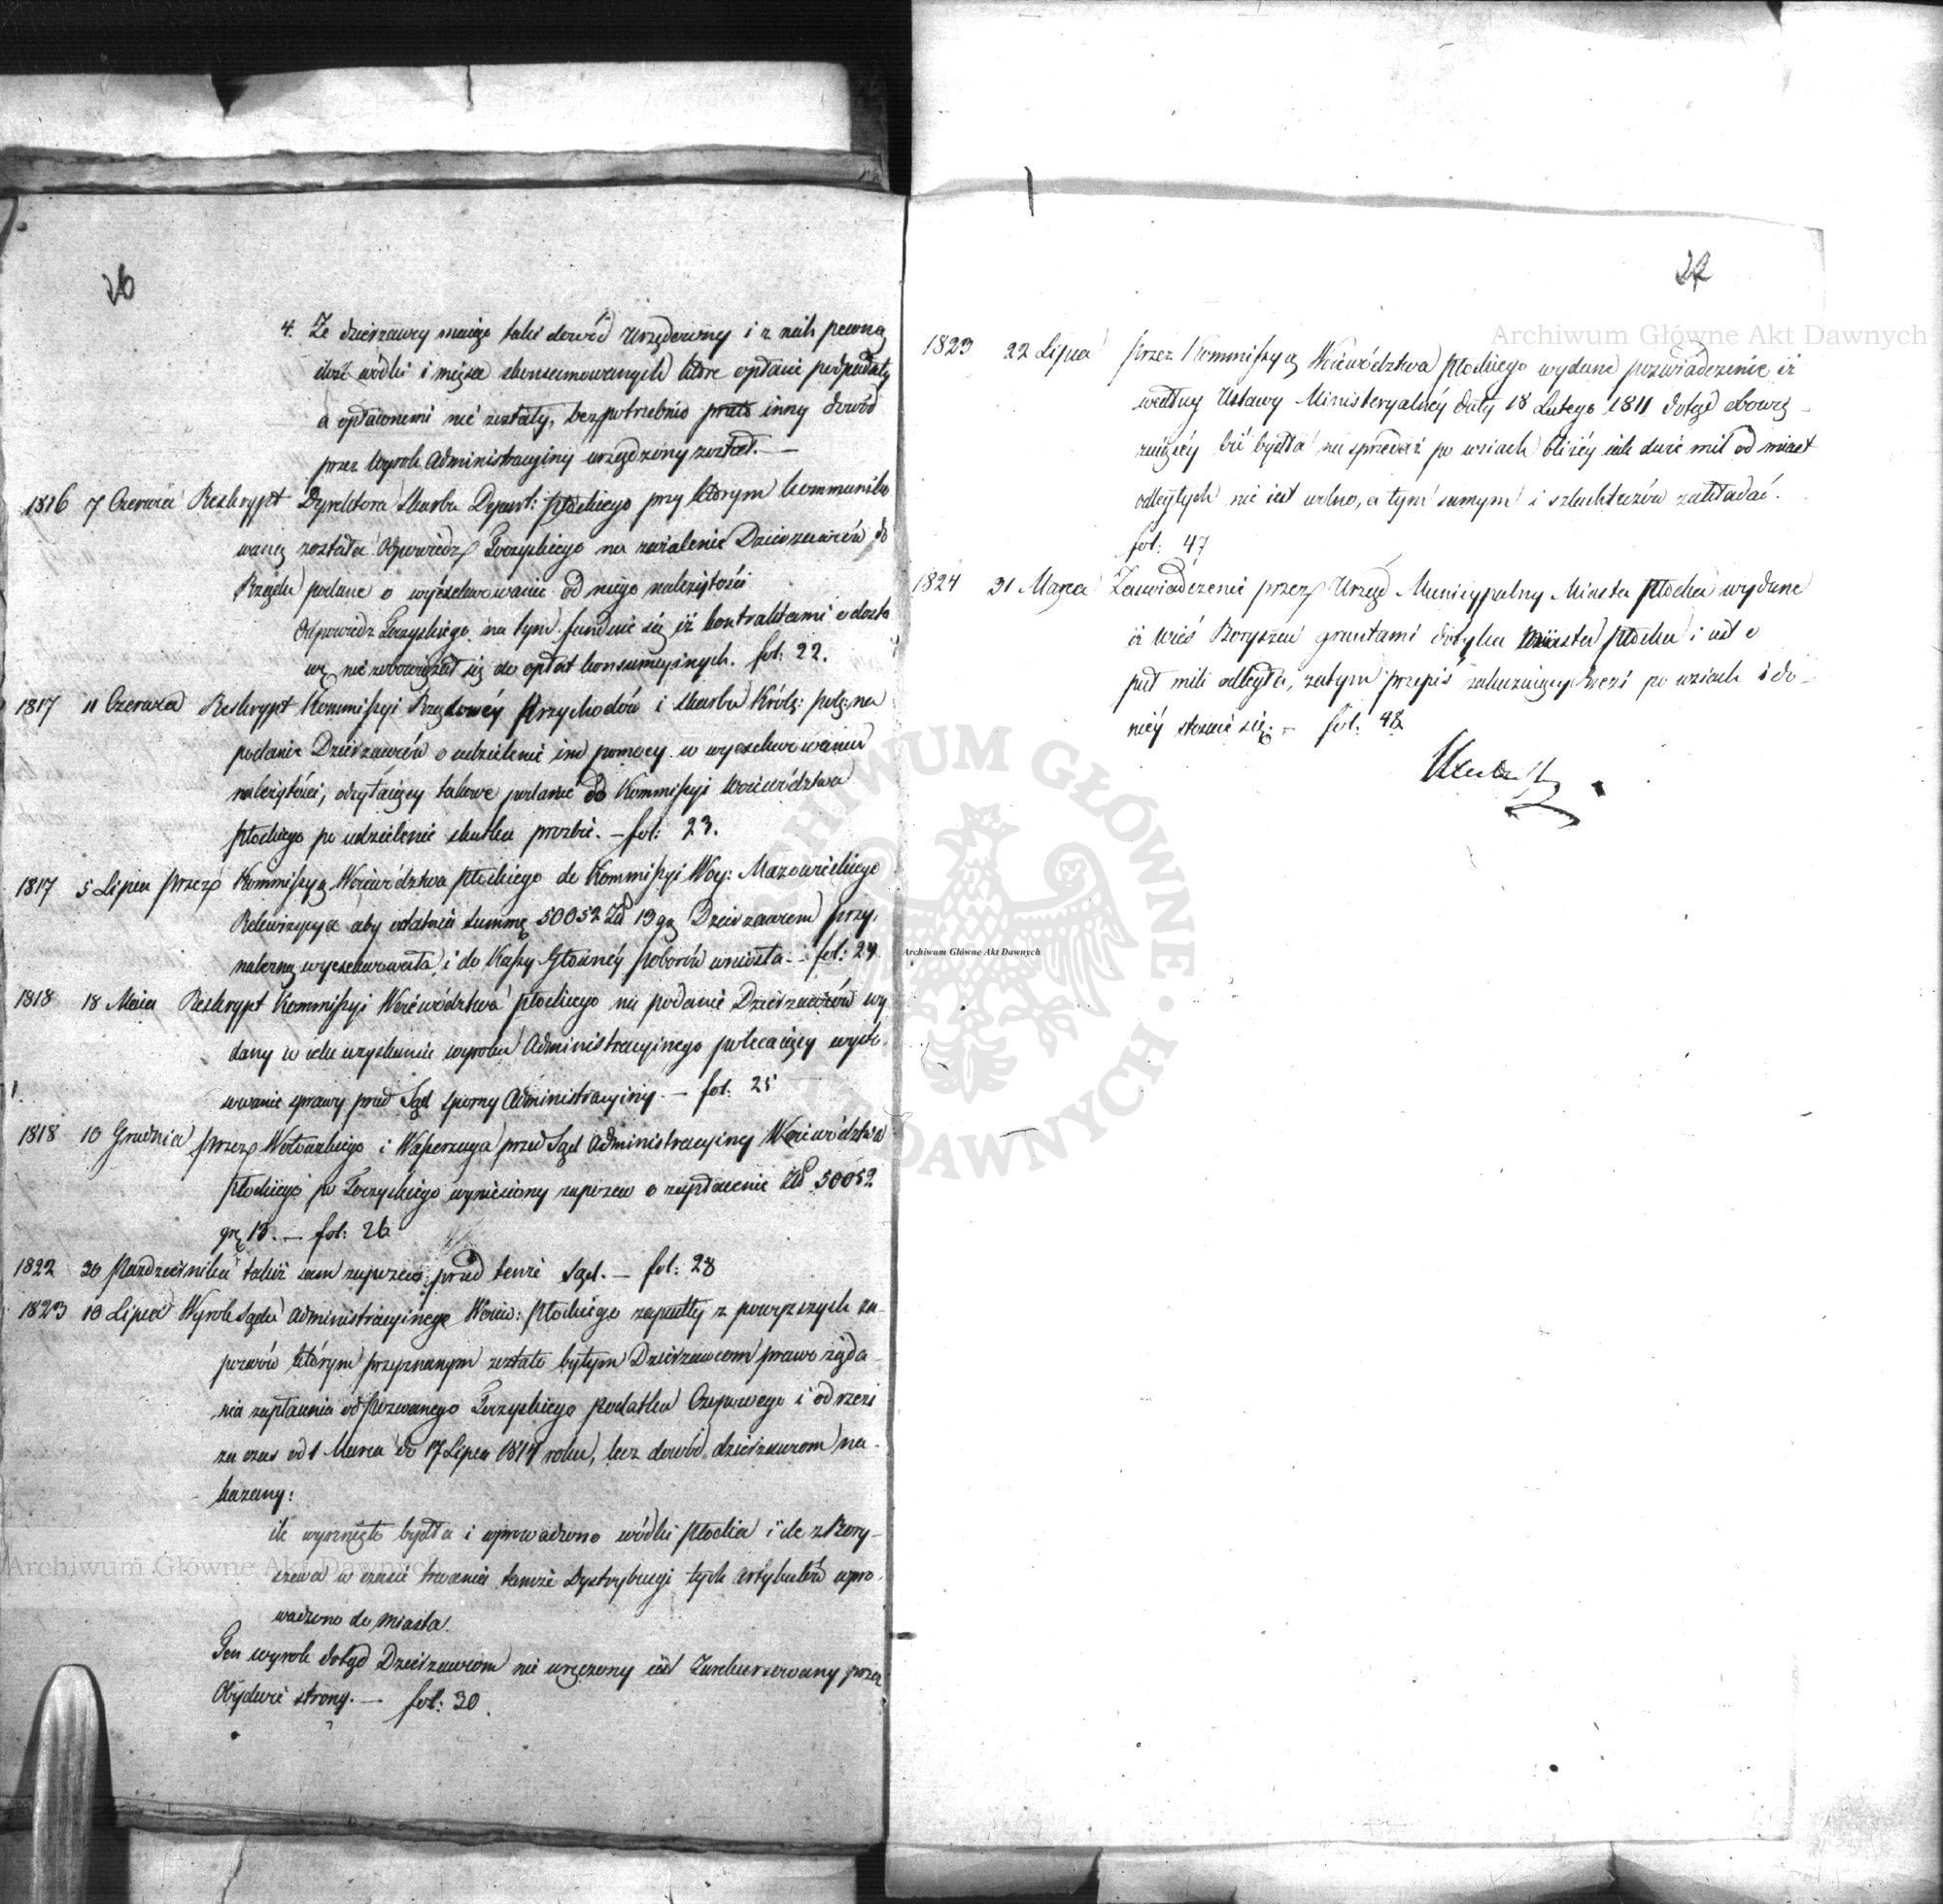 26
4. Że dzierżawcy maiąc taki dowód urzędowny i z nich pewną
ilość wódki i mięsa skonsumowanych które opłacie podpadały
a opłaconemi nie zostały, bezpotrzebnie prze inny dowód
przez Wyrok Administracyiny urządzony został. —
1816 7 Czerwca Reskrypt Dyrektora Skarbu Depart: Płockiego przy którym kommuniko
waną została Odpowiedź Toczyskiego na zażalenie Dzierżawców do
Rządu podane o wyexekwowanie od niego należytości
Odpowiedź Toczyskiego na tym funduie się iż kontraktami o dosta
wę nie zobowiązał się do opłat konsumcyinych. fol: 22.
1817 11 Czerwca Reskrypt Kommissyi Rządowéy Przychodów i Skarbu Król: pol: na
podanie Dzierżawców o udzielenie im pomocy w wyexekwowaniu
należytości, odsyłaiący takowe podanie do Kommissyi Woiewództwa
Płockiego po udzielenie skutku prozbie. — fol: 23.
1817 5 Lipca Przez Kommissyą Woiewództwa Płockiego do Kommissyi Woy: Mazowieckiego
Rekwizycya aby ostatnia summę 50052 Zł 13 gr Dzierżawcom przy,
należną wyexekwowała i do Kassy Głównéy poborów wniosła — fol: 24
1818 18 Maia Reskrypt Kommissyi Woiewództwa Płockiego na podanie Dzierżawców wy
dany w celu uzyskania wyroku Administracyinego polecaiący wyto-
czenie sprawy przed Sąd sporny Administracyiny. — fol: 25
1818 10 Grudnia przez Wołowskiego i Kasperzyka przed Sąd Administracyiny Woiewództwa
Płockiego po Toczyskiego wyniesiony zapozew o zapłacenie Zł 50052
gr 13. — fol: 26
1822 30 Pazdziernika takiż sam zapozew przed tenże Sąd. — fol: 28
1823 10 Lipca Wyrok Sądu Administracyinego Woiew: Płockiego zapadły z powyższych za-
pozwów którym przyznanym zostało byłym Dzierżawcom prawo żąda-
nia zapłacenia od Pozwanego Toczyskiego podatku Czopowego i od rzezi
za czas od 1 Marca do 17 Lipca 1814 roku, lecz dowód dzierżawcom na-
kazany:
ile wyrznięto bydła i wprowadzono wódki Płocka i ile z Bory-
szewa w czasie trwania tamże Dystrybucyi tych artykułów wpro-
wadzono do miasta.
Ten wyrok dotąd Dzierżawcom nie wręczony iest Zarekursowany przez
Obydwie strony. — fol: 30.
27
1823 22 Lipca Przez Kommissyą Woiewództwa Płockiego wydane poswiadczenie iż
według Ustawy Ministeryalnéy daty 18 Lutego 1811 dotąd obowią-
zuiącéy bić bydła na sprzedaż po wsiach bliżéy iak dwie mil od miast
odległych nie iest wolno, a tym samym i szlachtuzów zakładać.
fol: 47
1824 31 Marca Zaswiadczenie przez Urząd Municypalny Miasta Płocka wydane
iż wieś Boryszew gruntami dotyka Miasta Płocka i iest o
puł mili odległa, zatym przepis zakazuiący Rzezi po wsiach i do
niéy stosuie się. — fol: 48
Archiwum Główne Akt Dawnych
Archiwum Główne Akt Dawnych
Archiwum Główne Akt Dawnych
ARCHIWUM GŁÓWNE AKT DAWNYCH